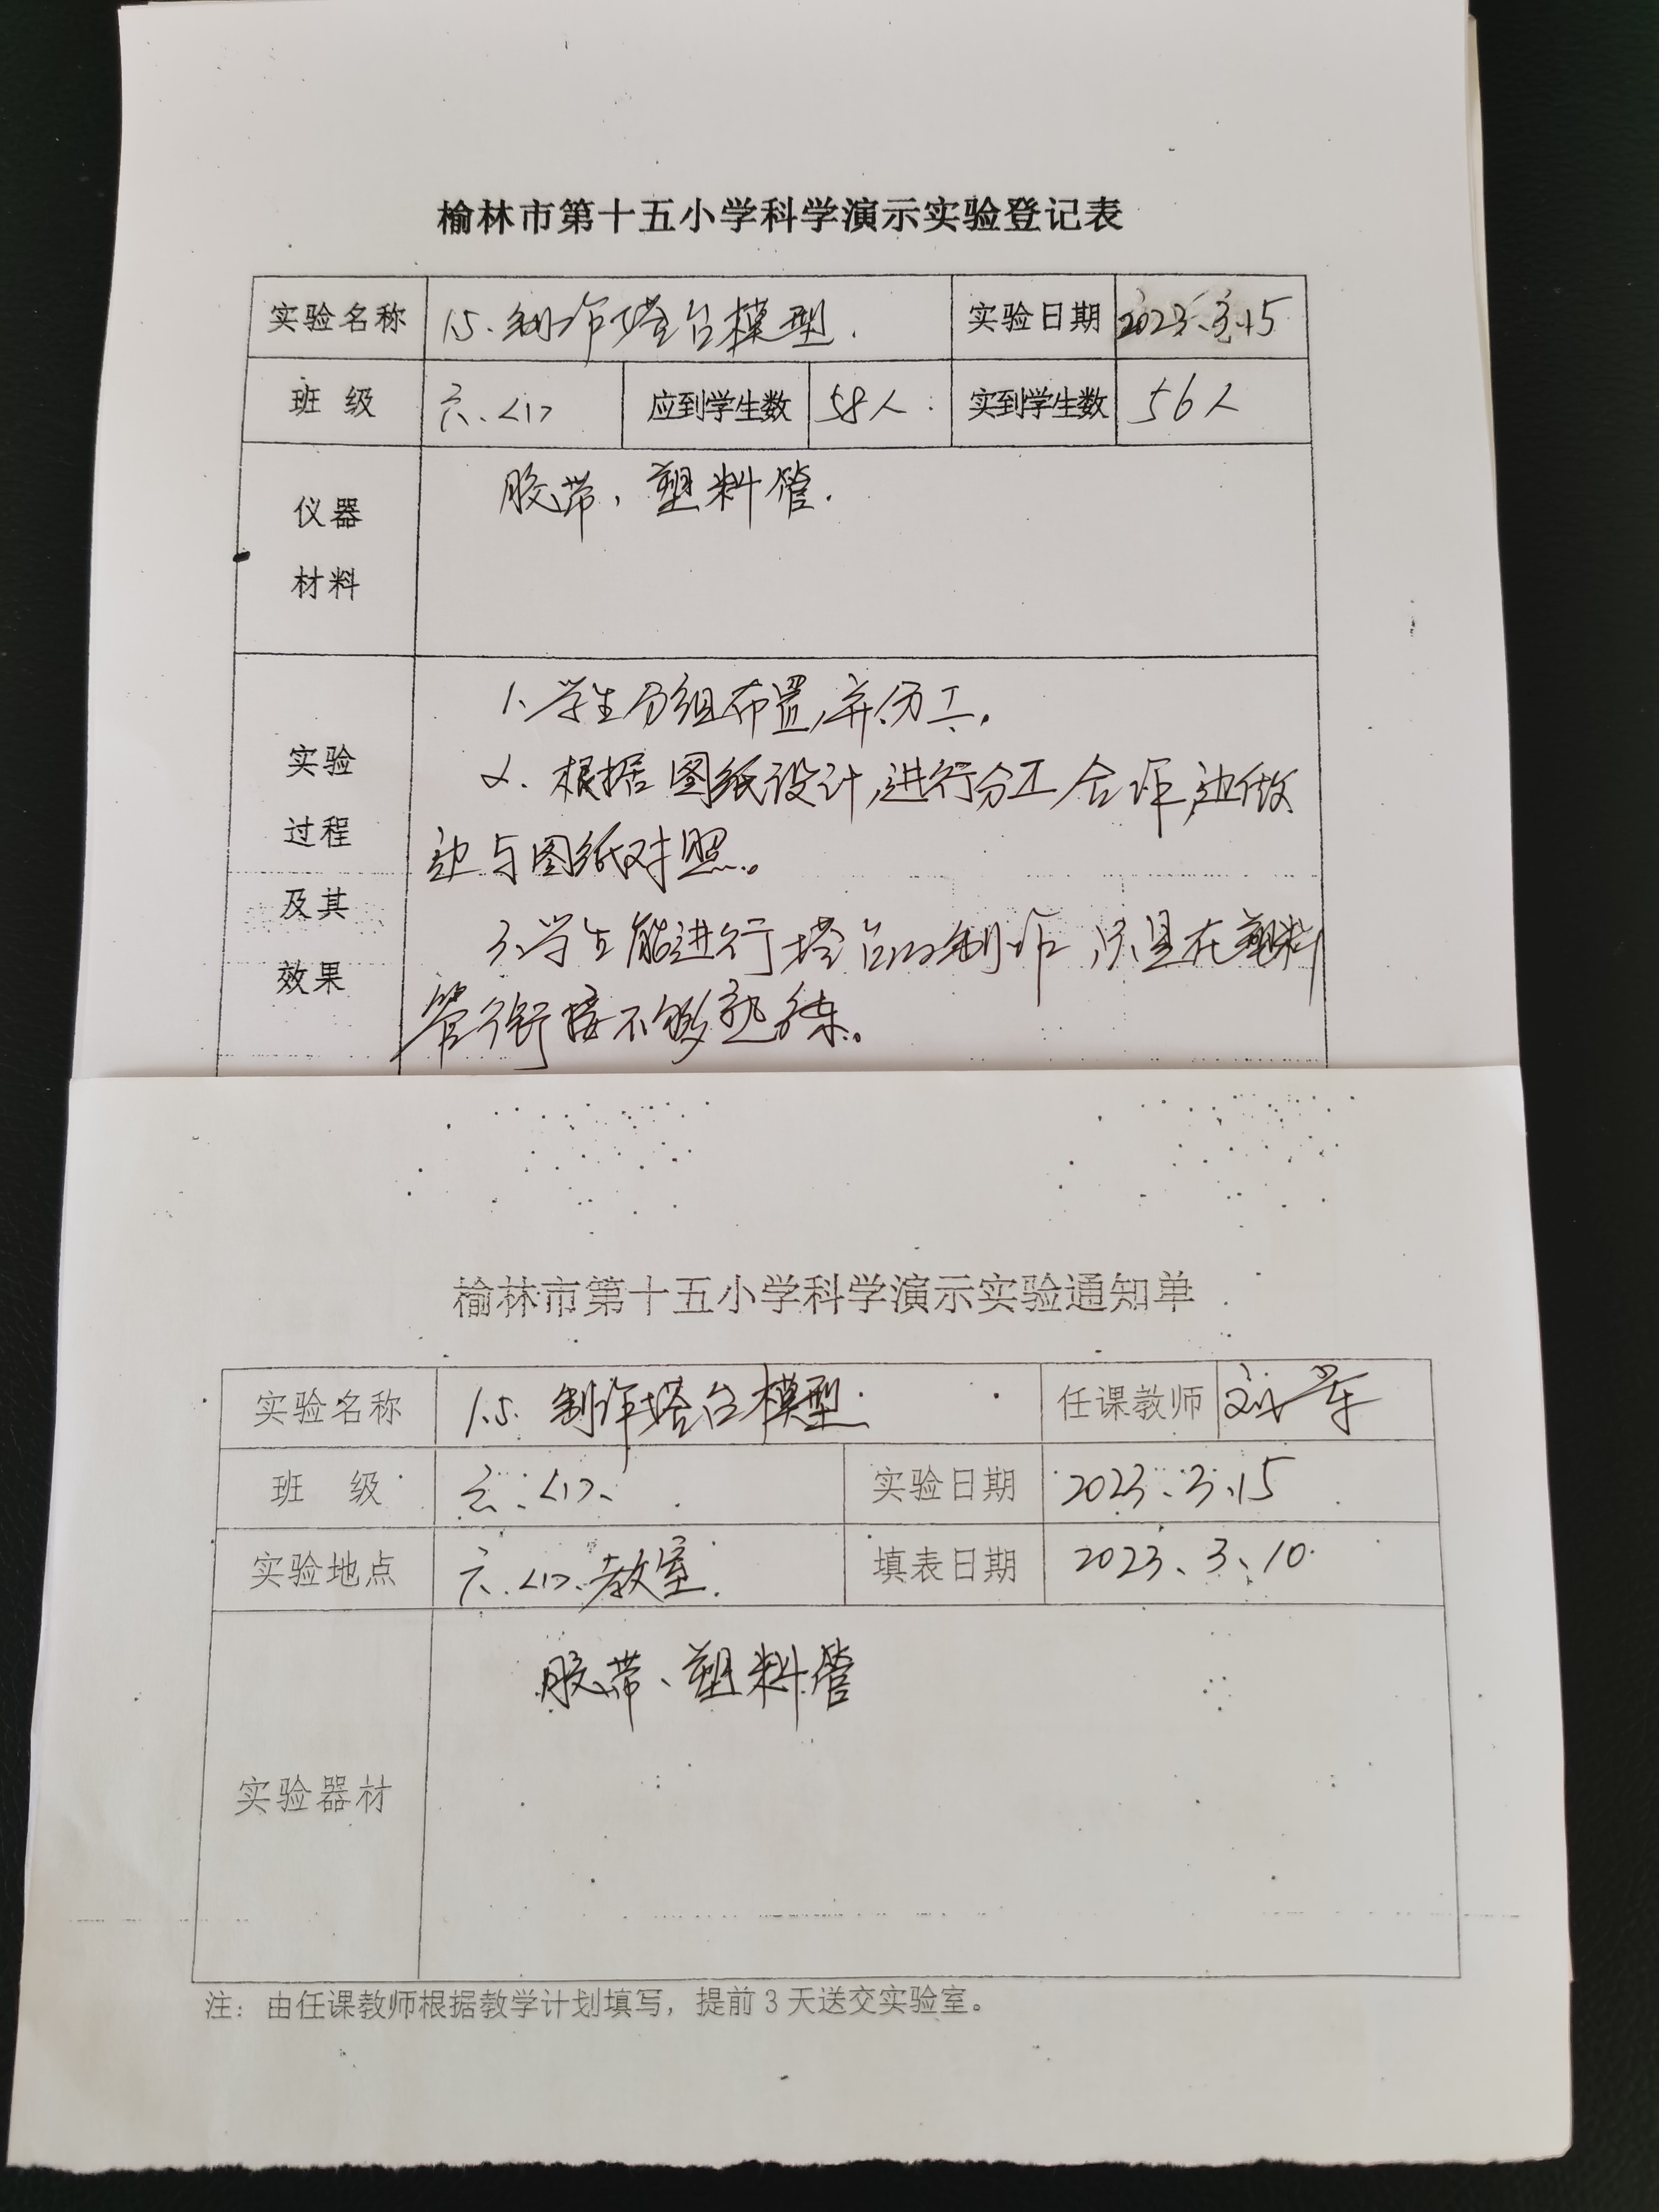 榆林市第十五小学科学演示实验登记表
实验名称 1.5.制作塔台模型. 实验日期 2023.3.15
班 级 六.<1> 应到学生数 58人. 实到学生数 56人
仪器 胶带、塑料管.
材料
1.学生分组布置,并分工.
实验 2.根据图纸设计,进行分工合作,边做
过程 边与图纸对照。
及其 3.学生能进行塔台的制作,只是在塑料
效果 管衔接不够熟练。
榆林市第十五小学科学演示实验通知单
实验名称 1.5.制作塔台模型. 任课教师
班 级 六.<1>. 实验日期 2023.3.15
实验地点 六.<1>.教室. 填表日期 2023.3.10
胶带、塑料管
实验器材
注：由任课教师根据教学计划填写，提前3天送交实验室。